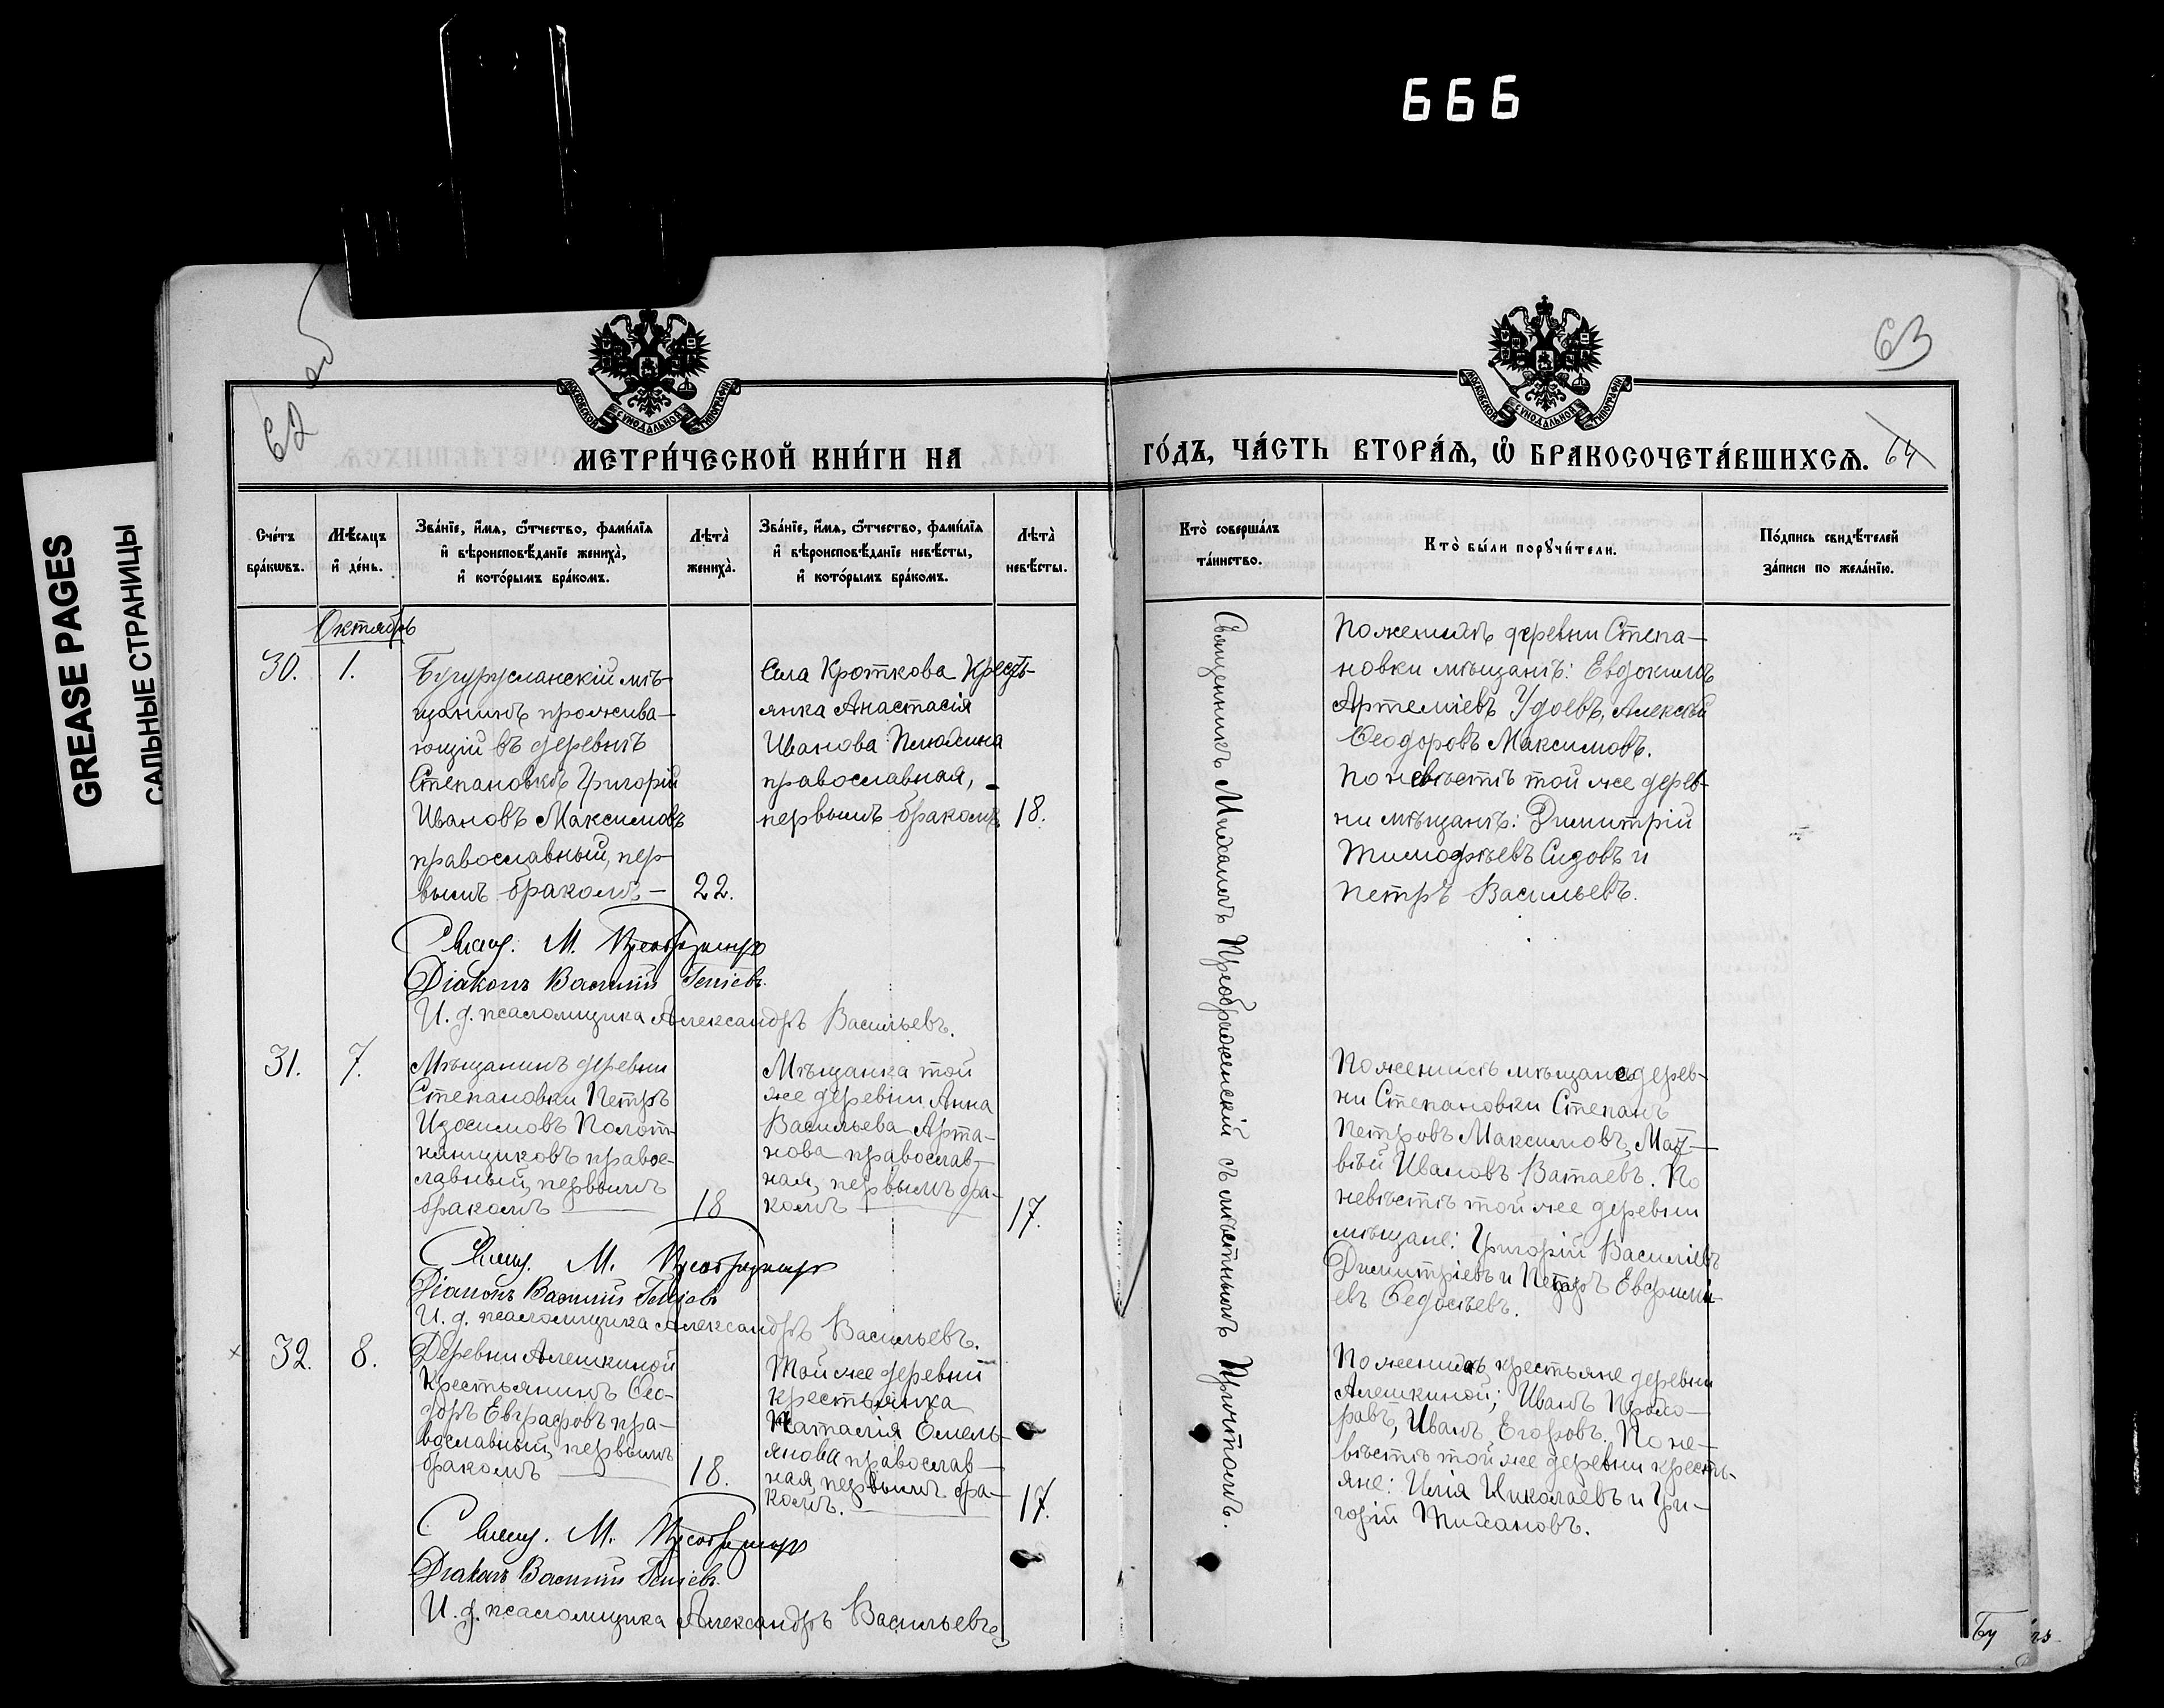 666
GREASE PAGES
САЛЬНЫЕ СТРАНИЦЫ
62
МОСКОВСКОЙ СѴНОДАЛЬНОЙ ТИПОГРАФІИ
МЕТРИ́ЧЕСКОЙ КНИ́ГИ НА
Сче́тъ
бра́кѡвъ.
Мѣ́сяцъ
и҆ де́нь.
Зва́нїе, и҆́мѧ, ѻ҆́тчество, фами́лїѧ
и҆ вѣроисповѣ́данїе жениха̀,
и҆ кото́рымъ бра́комъ.
Лѣта̀
жениха̀.
Зва́нїе, и҆́мѧ, ѻ҆́тчество, фами́лїѧ
и҆ вѣроисповѣ́данїе невѣ́сты,
и҆ кото́рымъ бра́комъ.
Лѣта̀
невѣ́сты.
Октябрь
30.
1.
Бугурусланскій мѣ-
щанинъ прожива-
ющій въ деревнѣ
Степановкѣ Григорій
Ивановъ Максимовъ
православный, пер-
вымъ бракомъ —
22.
Села Кроткова Кресть-
янка Анастасія
Иванова Плюхина
православная,
первымъ бракомъ
18.
Свящ. М. Преображенскій
Діаконъ Василій
И. д. псаломщика Александръ Васильевъ.
31.
7.
Мѣщанинъ деревни
Степановки Петръ
Изосимовъ Полот-
нянщиковъ правос-
лавный, первымъ
бракомъ
18
Мѣщанка той
же деревни Анна
Васильева Арта-
нова православ-
ная, первымъ бра-
комъ
17.
Свящ. М. Преображенскій
Діаконъ Василій
И. д. псаломщика Александръ Васильевъ.
32.
8.
Деревни Алешкиной
Крестьянинъ Ѳео-
доръ Евграфовъ пра-
вославный, первымъ
бракомъ
18.
Той же деревни
крестьянка
Наталія Омель-
янова православ-
ная, первымъ бра-
комъ.
17.
Свящ. М. Преображенскій
Діаконъ Василій
И. д. псаломщика Александръ Васильевъ
63
МОСКОВСКОЙ СѴНОДАЛЬНОЙ ТИПОГРАФІИ
ГО́ДЪ, ЧА́СТЬ ВТОРА́Ѧ, Ѡ҆ БРАКОСОЧЕТА́ВШИХСѦ.
64
Кто̀ соверша́лъ
та́инство.
Кто̀ бы́ли порꙋчи́тели.
По́дпись свидѣ́телей
за́писи по жела́нїю.
Священникъ Михаилъ Преображенскій съ мѣстнымъ Причтомъ.
По женихѣ деревни Степа-
новки мѣщанѣ: Евдокимъ
Артеміевъ Удоевъ, Алексѣй
Ѳеодоровъ Максимовъ.
По невѣстѣ той же дерев-
ни мѣщанѣ: Димитрій
Тимофѣевъ Сизовъ и
Петръ Васильевъ.
По женихѣ мѣщане дерев-
ни Степановки Степанъ
Петровъ Максимовъ, Мат-
вѣй Ивановъ Ватаевъ. По
невѣстѣ той же деревни
мѣщане: Григорій Василіевъ
Димитріевъ и Петръ Евфимі-
евъ Ѳедосѣевъ.
По женихѣ крестьяне деревни
Алешкиной; Иванъ Прохо-
ровъ, Иванъ Егоровъ. По не-
вѣстѣ той же деревни кресть-
яне: Илія Николаевъ и Гри-
горій Тихановъ.